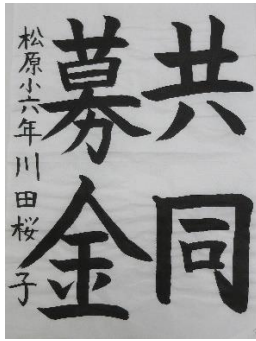 共同
募金
松原小六年川田桜子